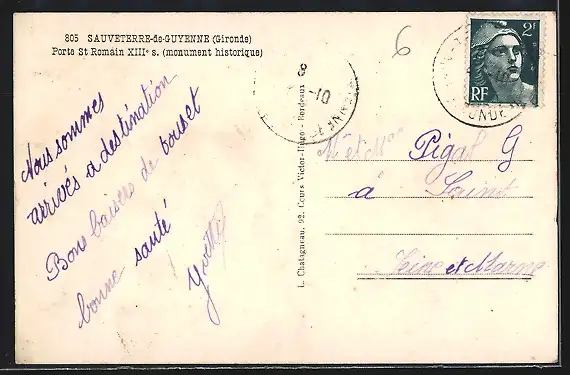 805 SAUVETERRE-de-GUYENNE (Gironde)
Porte St Romain XIIIe s. (monument historique)
Nous sommes
arrivés à destination
Bons baisers de
bonne santé
L. Chatagneau, 92, Cours Victor-Hugo - Bordeaux
6
2F
RF
-10
GIRONDE
Mr et Mme Pigal G
à
Seine et Marne